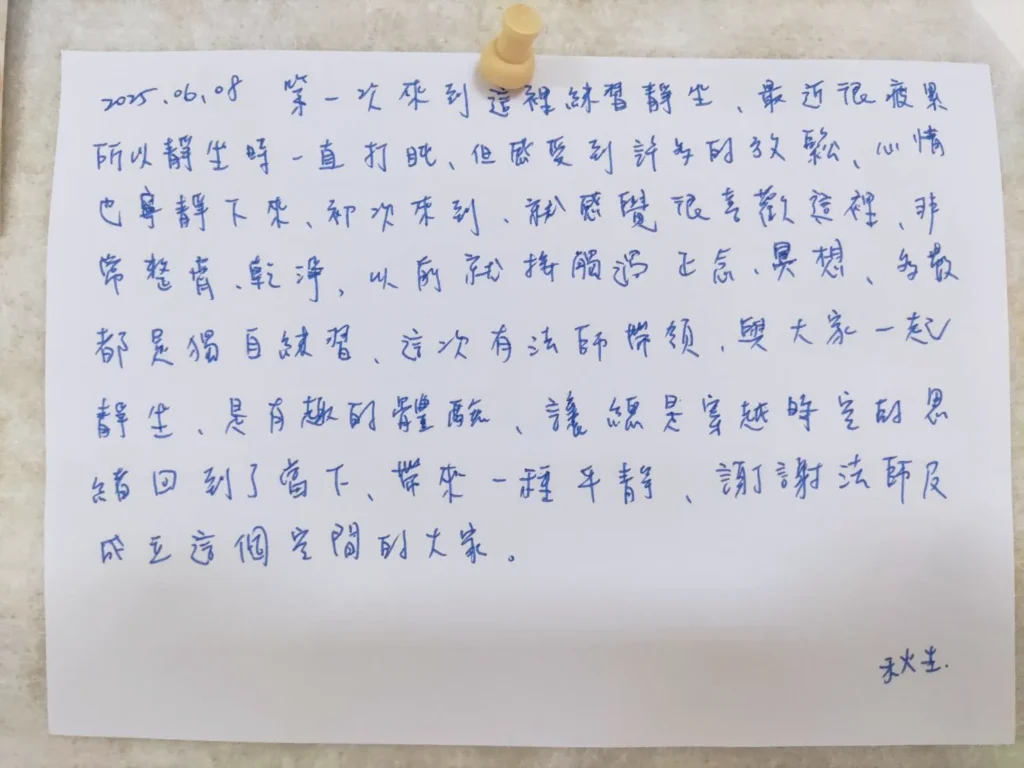 2025.06.08 第一次來到這裡練習靜坐、最近很疲累
所以靜坐時一直打盹、但感受到許多的放鬆、心情
也寧靜下來、初次來到、就感覺很喜歡這裡、非
常整齊、乾淨、以前就接觸過正念、冥想、多數
都是獨自練習、這次有法師帶領、與大家一起
靜坐、是有趣的體驗、讓總是穿越時空的思
緒回到了當下、帶來一種平靜、謝謝法師及
成立這個空間的大家。
秋生.